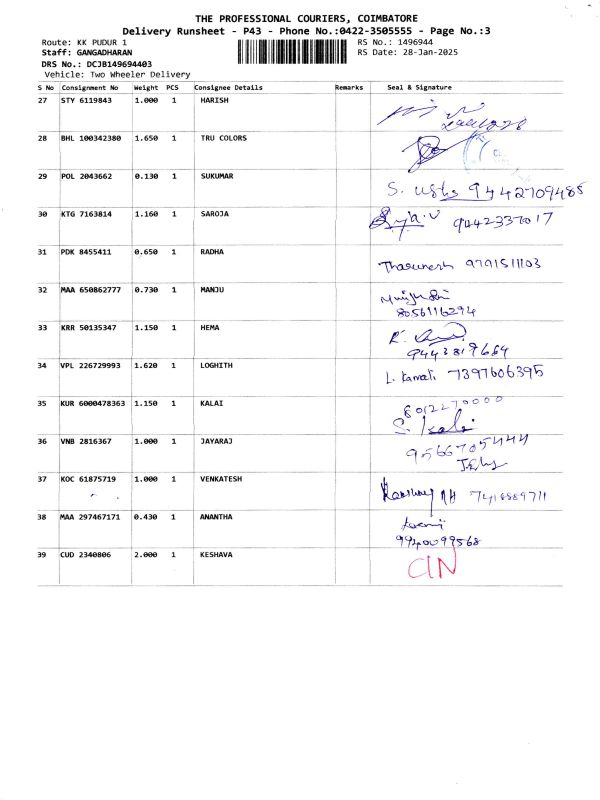 THE PROFESSIONAL COURIERS, COIMBATORE
Delivery Runsheet - P43 - Phone No.:0422-3505555 - Page No.:3
Route: KK PUDUR 1 RS No.: 1496944
Staff: GANGADHARAN RS Date: 28-Jan-2025
DRS No.: DCJB149694403
Vehicle: Two Wheeler Delivery
S No Consignment No Weight PCS Consignee Details Remarks Seal & Signature
27 STY 6119843 1.000 1 HARISH
28 BHL 100342380 1.650 1 TRU COLORS
29 POL 2043662 0.130 1 SUKUMAR
S. Usha 9442709485
30 KTG 7163814 1.160 1 SAROJA
9442337017
31 PDK 8455411 0.650 1 RADHA
Tharunesh 9791511103
32 MAA 650862777 0.730 1 MANJU
8056116294
33 KRR 50135347 1.150 1 HEMA
9443819684
34 VPL 226729993 1.620 1 LOGHITH
L. Kamali 7397606395
35 KUR 6000478363 1.150 1 KALAI
8012270000
S. Kalai
36 VNB 2816367 1.000 1 JAYARAJ
9566705444
37 KOC 61875719 1.000 1 VENKATESH
7418589711
38 MAA 297467171 0.430 1 ANANTHA
9940099568
39 CUD 2340806 2.000 1 KESHAVA
CIN